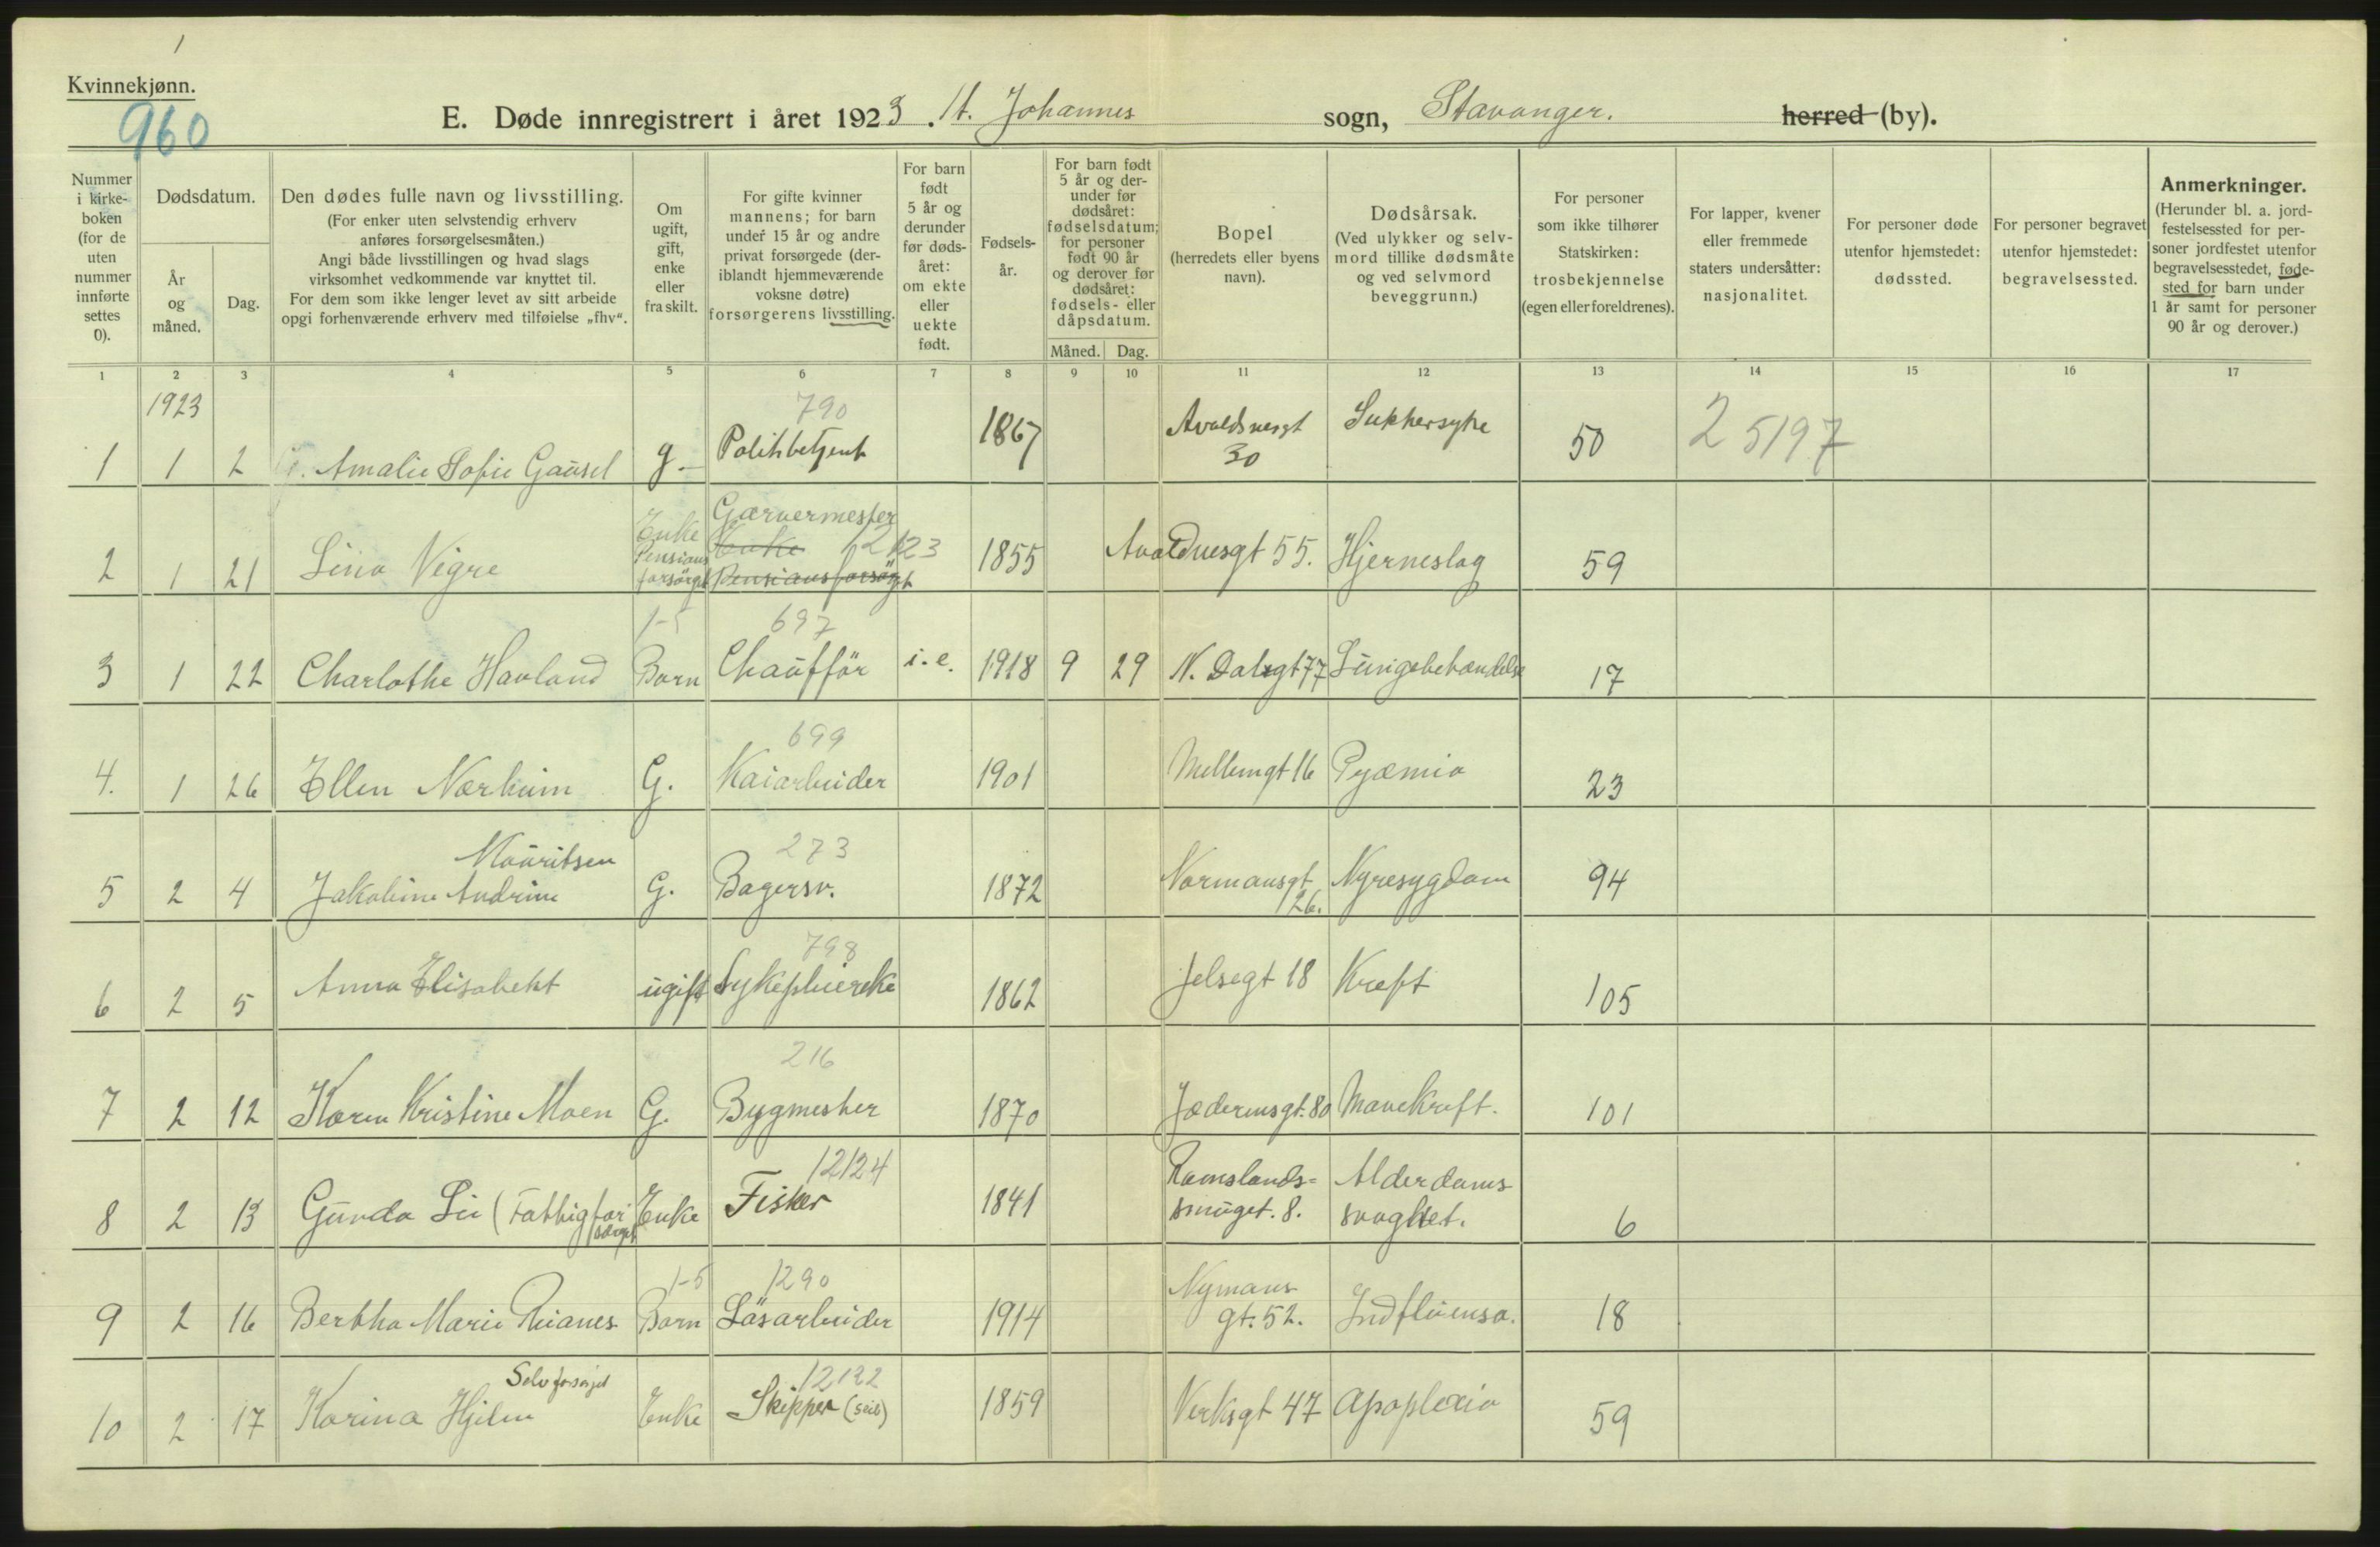 1
Kvinnekjønn.
960
E. Døde innregistrert i året 1923. St. Johannes sogn, Stavanger. herred (by).
Nummer i kirkeboken (for de uten nummer innførte settes 0).
Dødsdatum.
År og måned.
Dag.
Den dødes fulle navn og livsstilling.
(For enker uten selvstendig erhverv
anføres forsørgelsesmåten.)
Angi både livsstillingen og hvad slags
virksomhet vedkommende var knyttet til.
For dem som ikke lenger levet av sitt arbeide
opgi forhenværende erhverv med tilføielse „fhv“.
Om ugift, gift, enke eller fraskilt.
For gifte kvinner
mannens; for barn
under 15 år og andre
privat forsørgede (der-
iblandt hjemmeværende
voksne døtre)
forsørgerens livsstilling.
For barn født 5 år og derunder før dødsåret: om ekte eller uekte født.
Fødsels-
år.
For barn født
5 år og der-
under før
dødsåret:
fødselsdatum;
for personer
født 90 år
og derover før
dødsåret:
fødsels- eller
dåpsdatum.
Måned. Dag.
Bopel
(herredets eller byens
navn).
Dødsårsak.
(Ved ulykker og selv-
mord tillike dødsmåte
og ved selvmord
beveggrunn.)
For personer
som ikke tilhører
Statskirken:
trosbekjennelse
(egen eller foreldrenes).
For lapper, kvener
eller fremmede
staters undersåtter:
nasjonalitet.
For personer døde
utenfor hjemstedet:
dødssted.
For personer begravet
utenfor hjemstedet:
begravelsessted.
Anmerkninger.
(Herunder bl. a. jord-
festelsessted for per-
soner jordfestet utenfor
begravelsesstedet, føde-
sted for barn under
1 år samt for personer
90 år og derover.)
1 2 3 4 5 6 7 8 9 10 11 12 13 14 15 16 17
1923
790
1 1 2 G. Amalie Sofie Gausel g. Politibetjent 1867 Avaldsnesgt 30 Sukkersyke 50 25197
Garvermester
Enke Enke 12123
2 1 21 Lina Vigre Pensions forsörget Pensionsforsörgt 1855 Avaldnesgt 55. Hjerneslag 59
1-5 697
3 1 22 Charlothe Havland Barn Chaufför i.e. 1918 9 29 N. Dalsgt 77 Lungebetændelse 17
699
4. 1 26 Ellen Nærheim G. Kaiarbeider 1901 Mellemgt 16 Pyæmia 23
Mauritsen 273
5 2 4 Jakobine Andrine G. Bagersv. 1872 Normansgt 26. Nyresygdom 94
798
6 2 5 Anna Elisabeht ugift Sykepleierske 1862 Jelsegt 18 Kreft 105
216
7 2 12 Karen Kristine Moen G. Bygmester 1870 Jæderensgt. 80 Mavekreft. 101
12124
8 2 13 Gunda Lie (Fattigforsørget Enke Fisker 1841 Ramslands= smuget. 8. Alderdoms svaghet. 6
1-5 1290
9 2 16 Bertha Marie Rianes Barn Løsarbeider 1914 Nymans gt. 52. Indfluensa. 18
Selvforsørget 12122
10 2 17 Karina Hjelm Enke Skipper (seil) 1859 Verksgt 47 Apoplexia 59